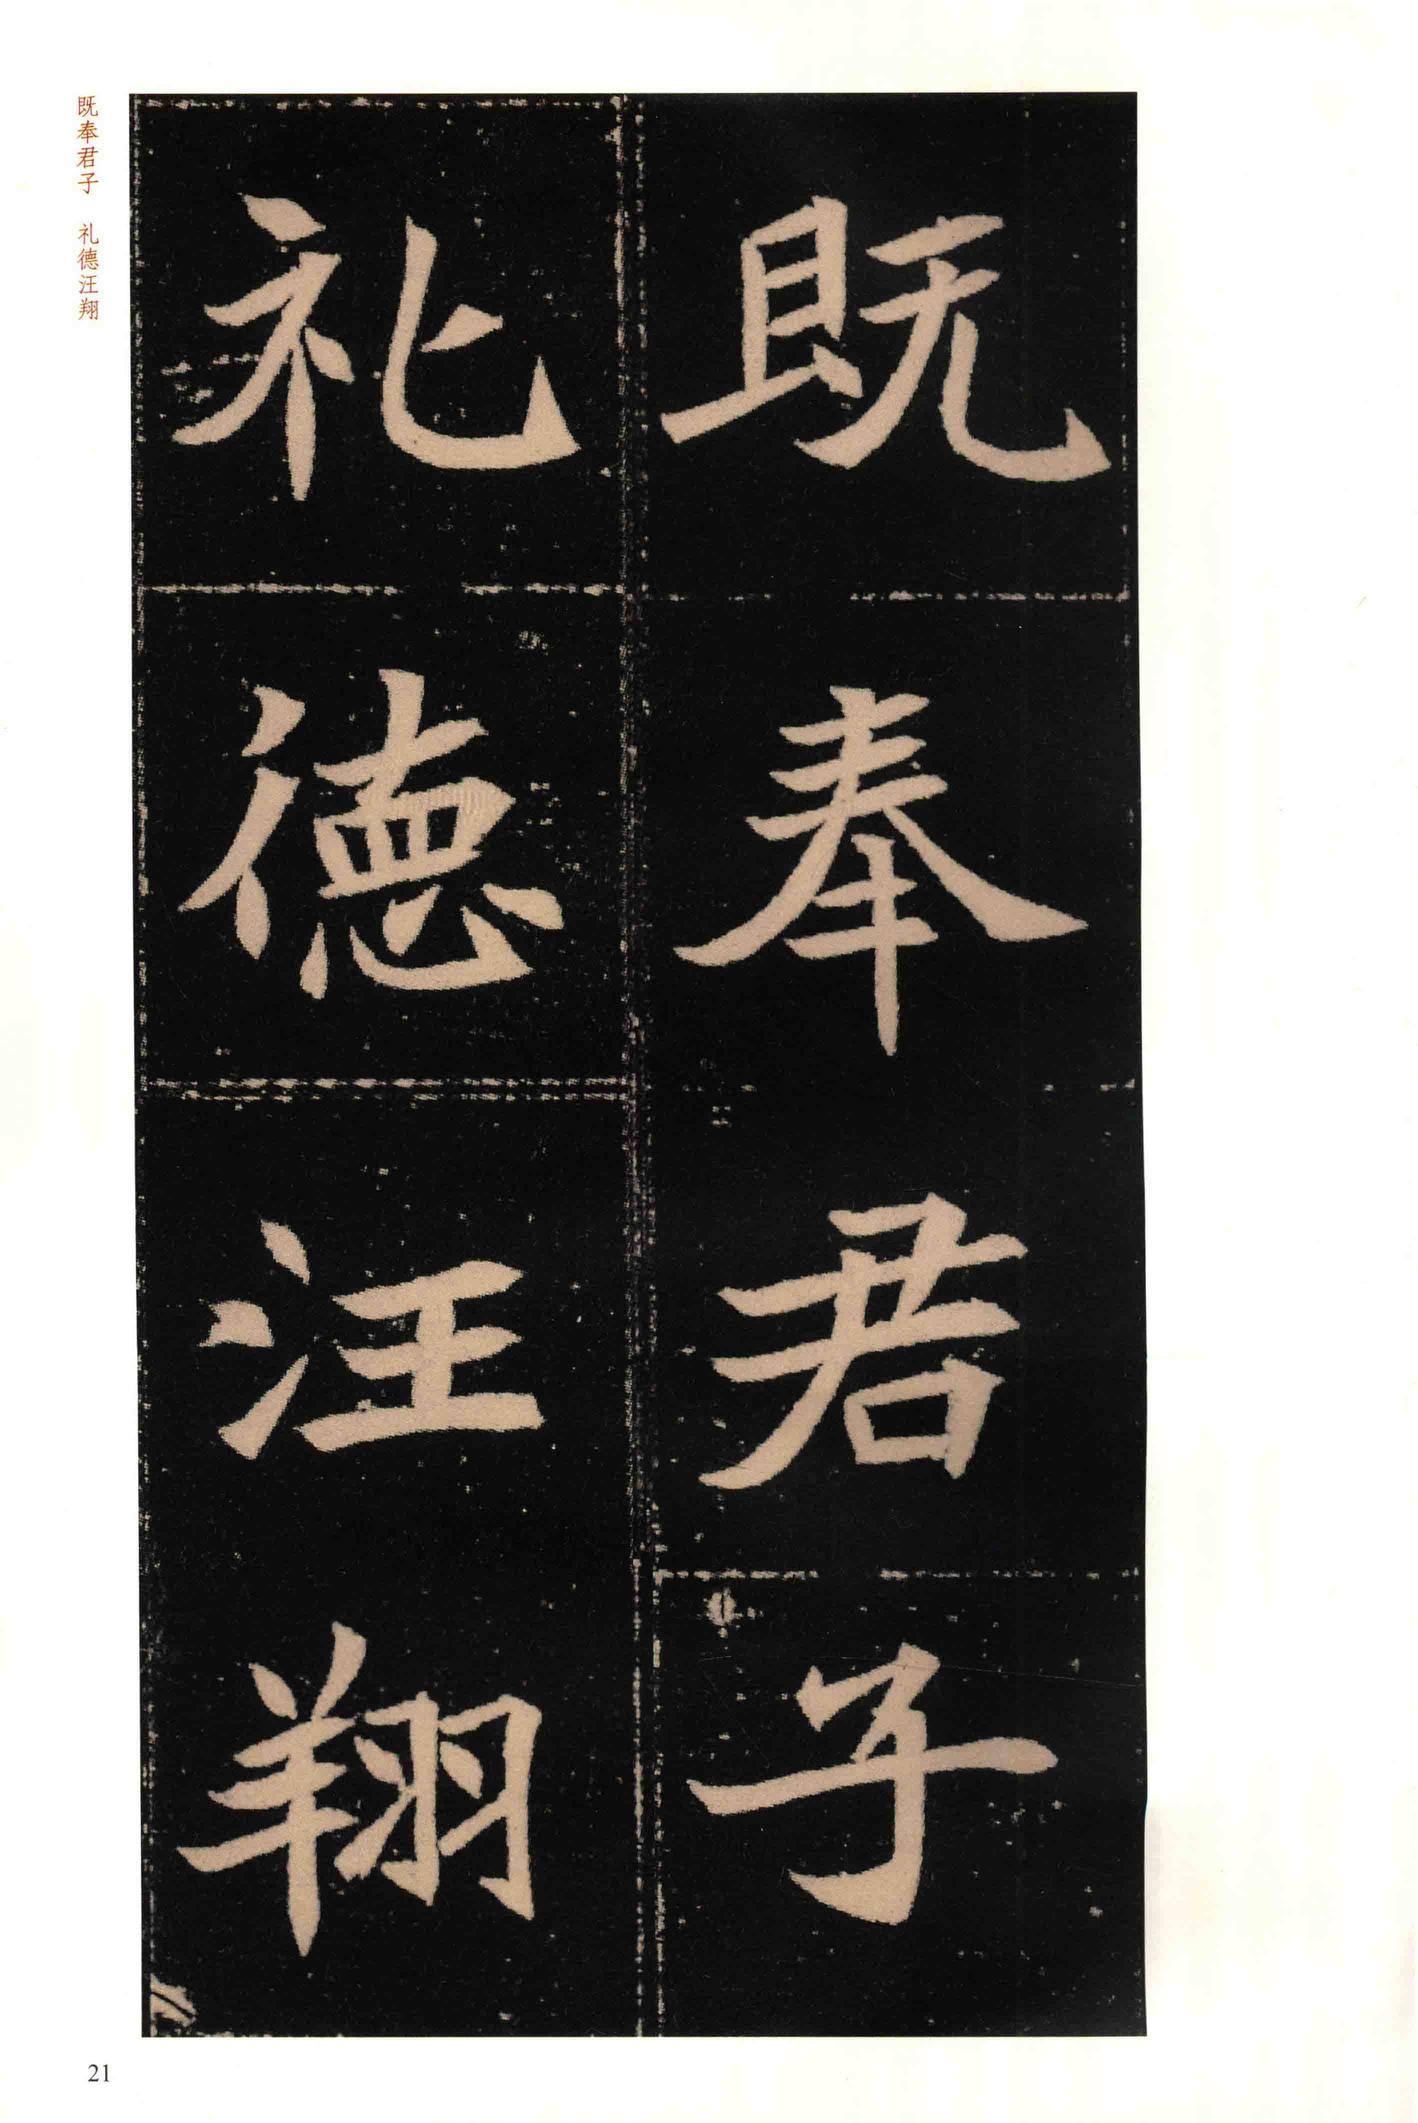 既奉君子
礼德汪翔
既奉君子 礼德汪翔
21